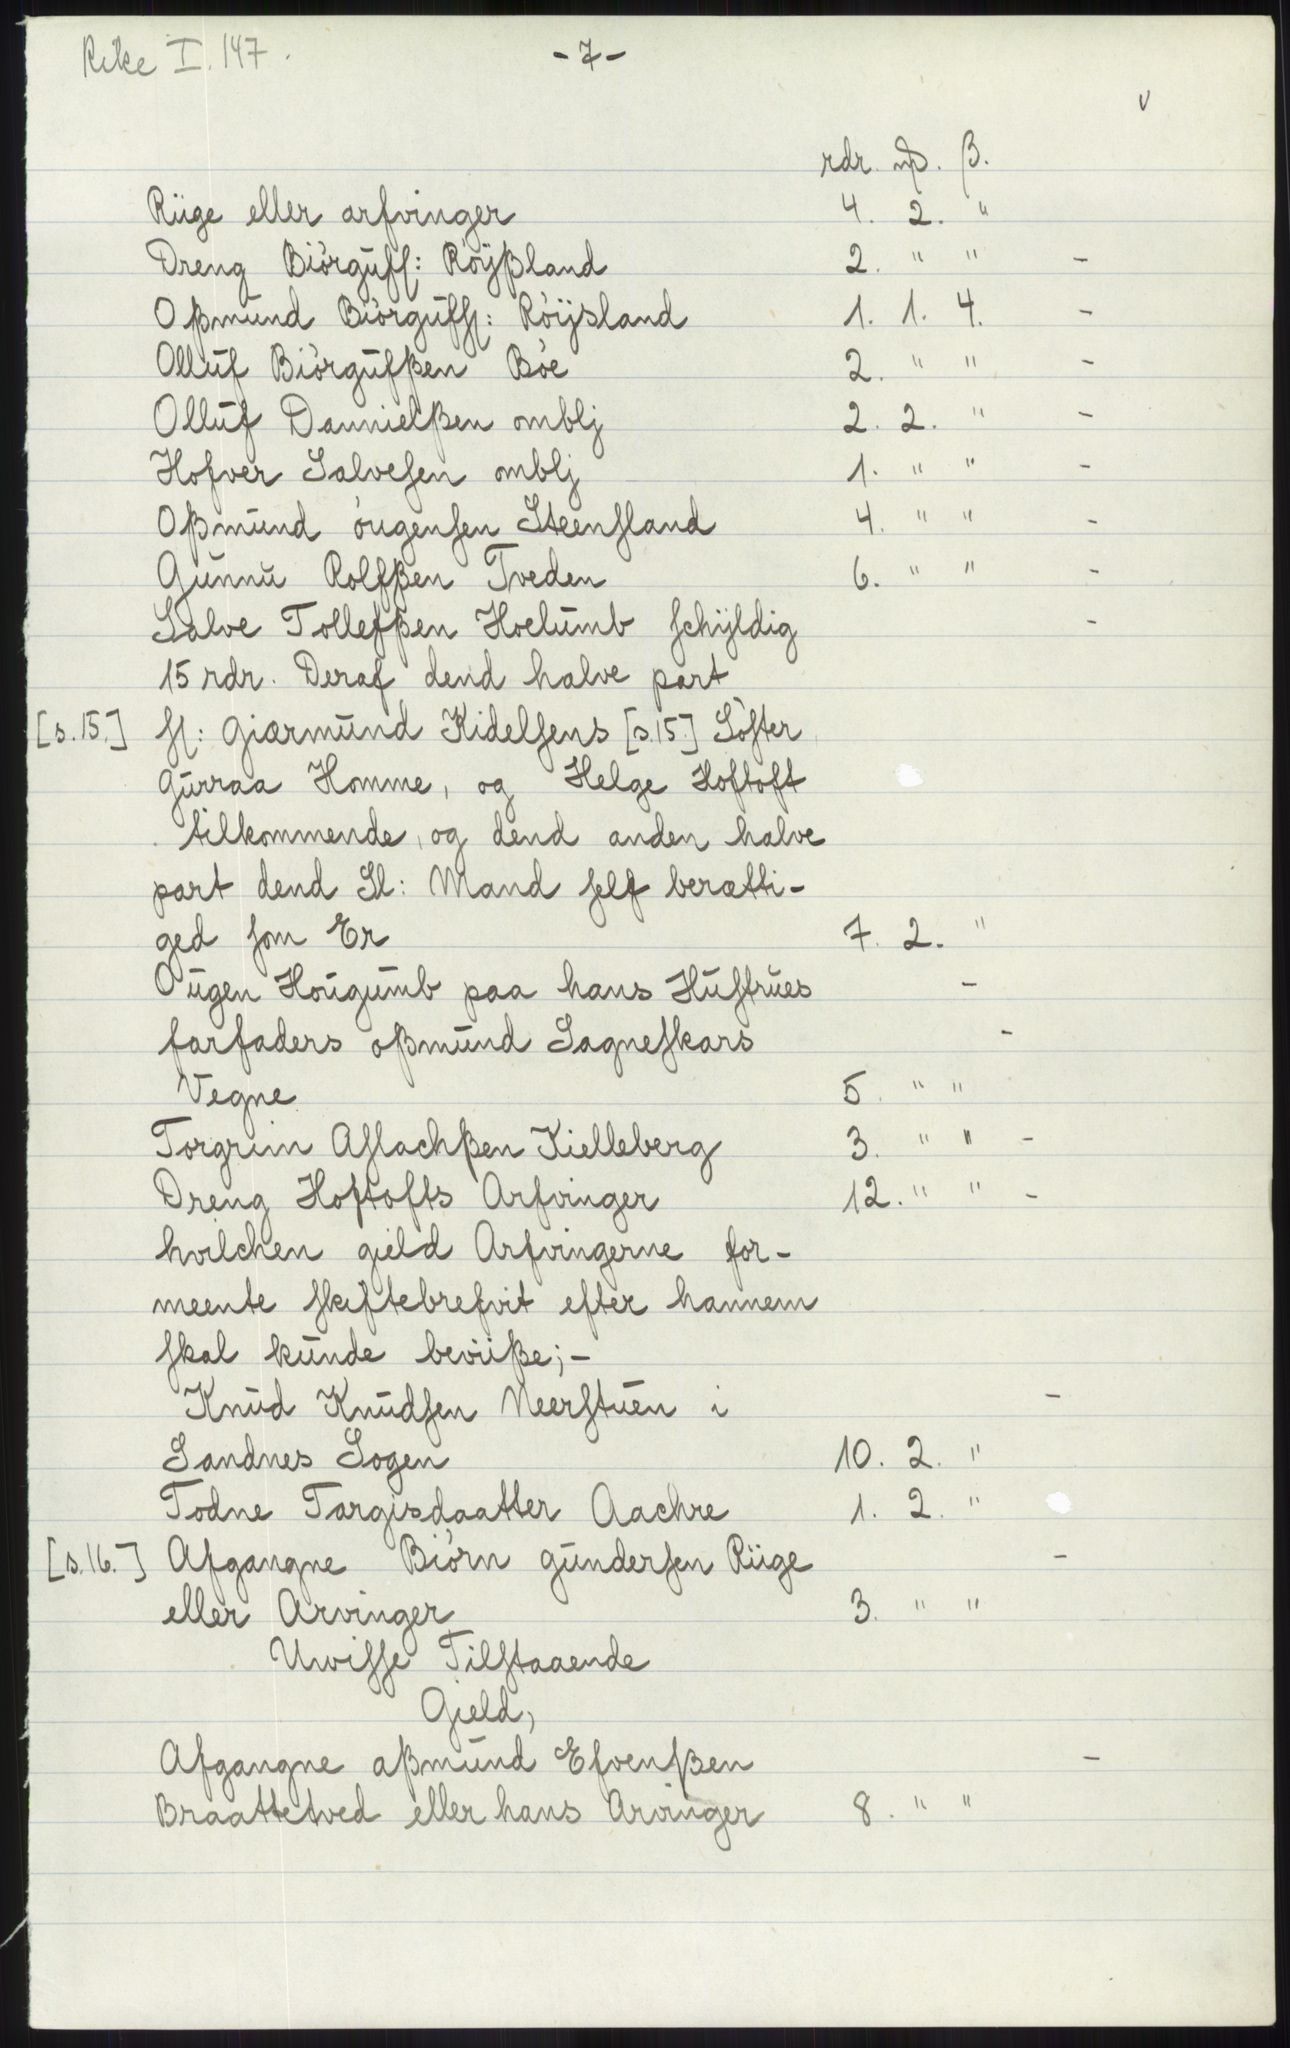 Rike I. 147.
- 7 -
v
rdr. mþ. β.
Riige eller arfvinger 4. 2. "
Dreng Biörgufſ: Röÿßland 2. " " -
Oßmund Biörgufſ: Röÿsland 1. 1. 4. -
Olluf Biörgufßen Böe 2. " " -
Olluf Dannielßen omblj 2. 2. " -
Hofver Salveſen omblj 1. " " -
Oßmund öugenſen Steenſland 4. " " -
Gunnu Rolfßen Tveden 6. " " -
Salve Tollefßen Hoelumb ſchÿldig -
15 rdr. Deraf dend halve part
[s. 15.] ſl: Giærmund Kidelſens [s. 15.] Söſter
Gurraa Homme, og Helge Hoftoft
tilkommende, og dend anden halve
part dend Sl: Mand ſelf berætti-
ged ſom Er 7. 2. "
Ougen Hougumb paa hans Huſtrues -
farfaders oßmund Sagneſkars -
Vegne 5. " "
Torgrim Aſlachßen Kielleberg 3. " " -
Dreng Hoftofts Arfvinger 12. " " -
hvilchen gield Arfvingerne for-
meente ſkiftebrefvit efter hannem
ſkal kunde beviiße; -
Knud Knudſen Neerſtuen i -
Sandnes Sogen 10. 2. "
Todne Targisdaatter Aachre 1. 2. "
[s. 16.] Afgangne Biörn gunderſen Riige -
eller Arvinger 3. " "
Uviſſe Tilſtaaende
Gield,
Afgangne aßmund Efvenßen -
Braattetved eller hans Arvinger 8. " "